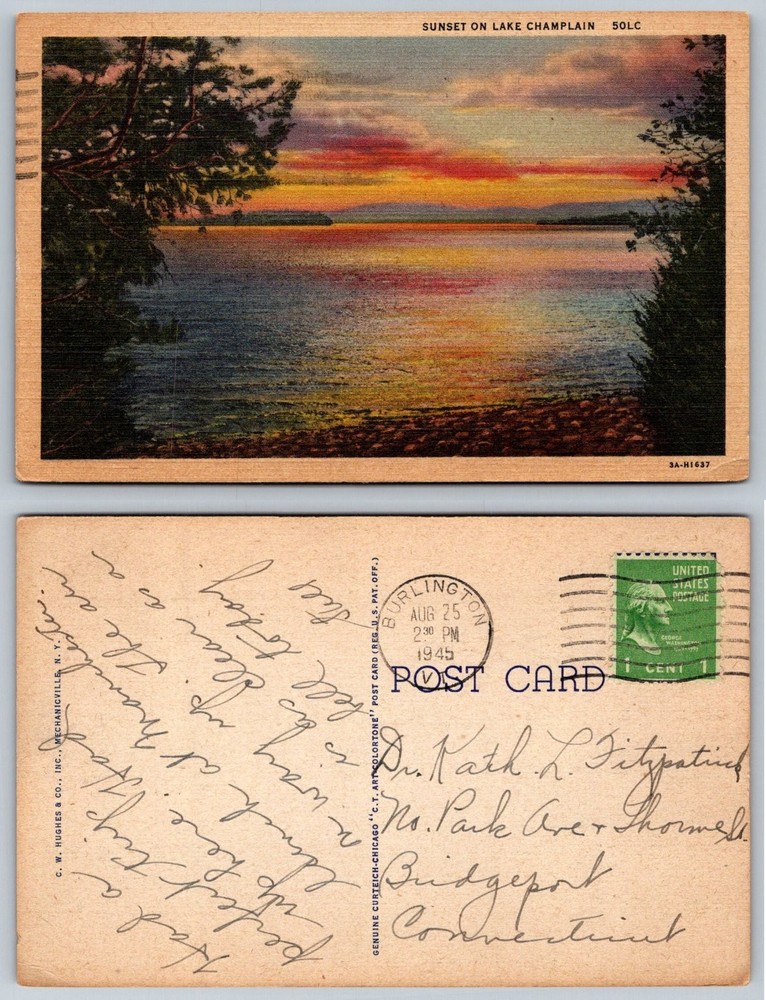 SUNSET ON LAKE CHAMPLAIN 50LC
3A-H1637
C. W. HUGHES & CO., INC., MECHANICVILLE, N. Y.
Had a
perfect trip
up here. Had
lunch at Manchester
on way up. The air
is as clear as a
bell today
GENUINE CURTEICH-CHICAGO "C.T. ART-COLORTONE" POST CARD (REG. U.S. PAT. OFF.)
BURLINGTON
AUG 25
2 30 PM
1945
VT.
UNITED
STATES
POSTAGE
GEORGE
WASHINGTON
1 CENT 1
POST CARD
Dr. Kath. L. Fitzpatrick
No. Park Ave + Thorme St.
Bridgeport
Connecticut